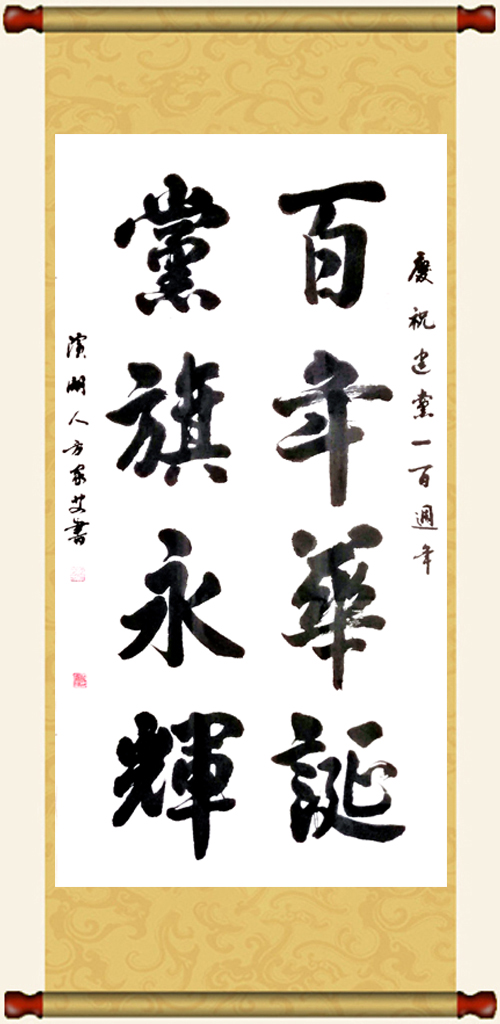 慶祝建黨一百週年
百年華誕
黨旗永輝
濱湖人方家艾書